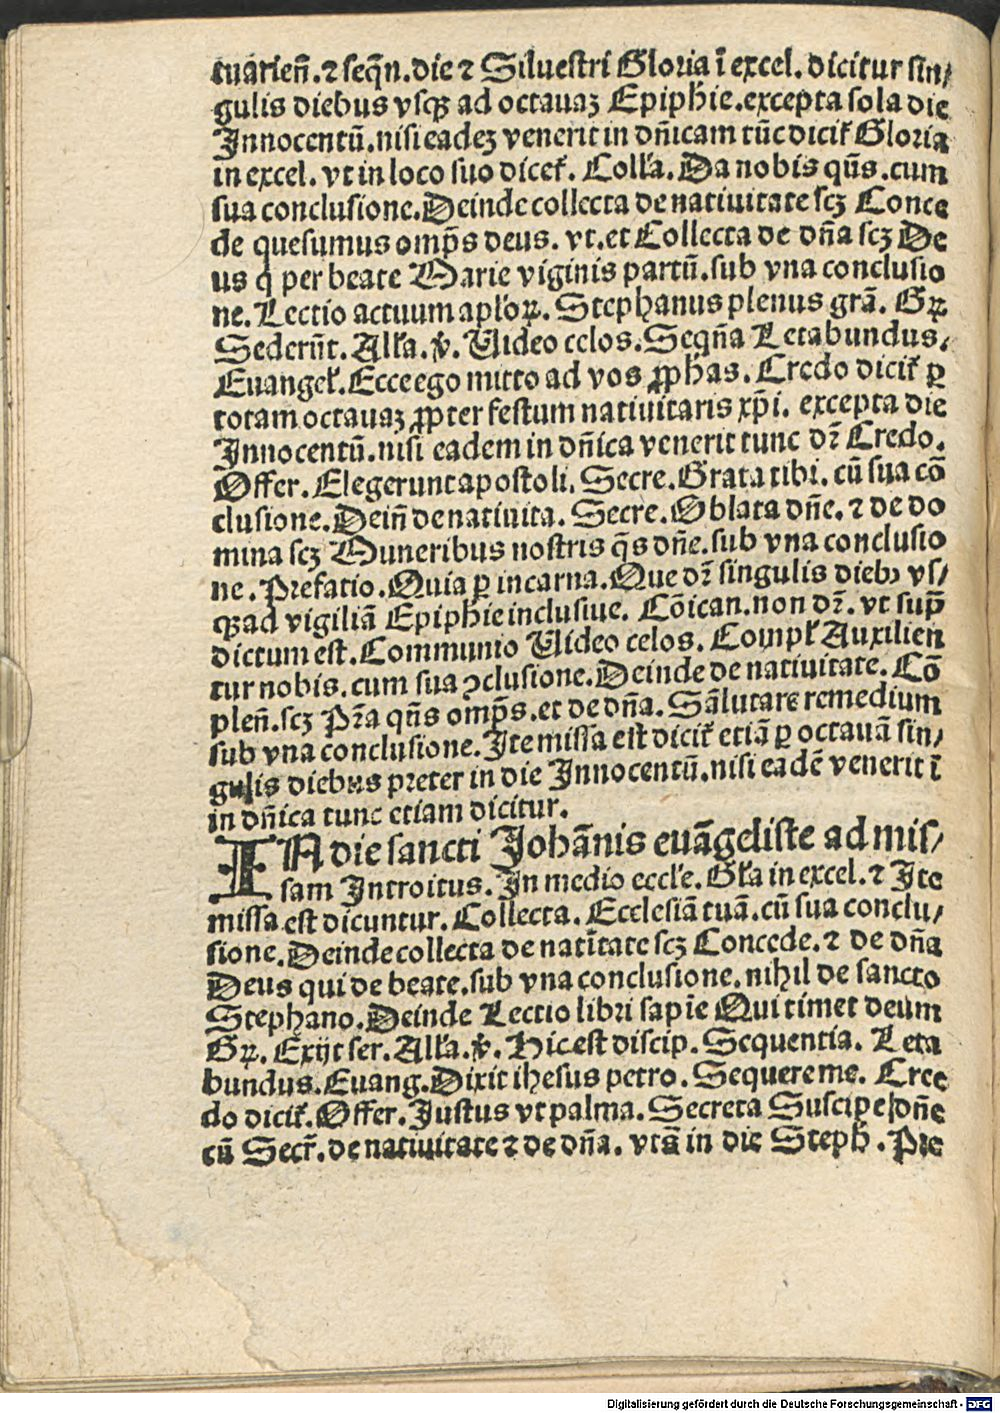 tuarien̄. ⁊ seq̄n. die ⁊ Siluestri Gloria ī excel. dicitur sin/
gulis diebus vsqꝫ ad octauaꝫ Epiphīe. excepta sola die
Innocentū. nisi eadeꝫ venerit in dn̄icam tūc dicit᷑ Gloria
in excel. vt in loco suo dicet᷑. Coll'a. Da nobis qn̄s. cum
sua conclusione. Deinde collecta de natiuitate scꝫ Conce
de quesumus omp̄s deus. vt. et Collecta de dn̄a scꝫ De
us q̇ per beate Marie viginis partū. sub vna conclusio
ne. Lectio actuum apl'oꝝ. Stephanus plenus grā. Gꝝ.
Sederūt. All'a. ℣. Uideo celos. Seqn̄a Letabundus.
Euangel'. Ecce ego mitto ad vos ꝓphas. Credo dicit᷑ ꝑ
totam octauaꝫ ꝓpter festum natiuitaris xp̄i. excepta die
Innocentū. nisi eadem in dn̄ica venerit tunc dr̄ Credo.
Offer. Elegerunt apostoli. Secre. Grata tibi. cū sua cō
clusione. Dein̄ de natiuita. Secre. Oblata dn̄e. ⁊ de do
mina scꝫ Muneribus nostris q̄s dn̄e. sub vna conclusio
ne. Prefatio. Quia ꝑ incarna. Que dr̄ singulis dieb⁹ vs/
qꝫ ad vigiliā Epiphīe inclusiue. Cōican. non dr̄. vt sup̄
dictum est. Communio Uideo celos. Compl' Auxilien
tur nobis. cum sua ꝯclusione. Deinde de natiuitate. Cō
plen̄. scꝫ Pr̄a qn̄s omp̄s. et de dn̄a. Sālutare remedium
sub vna conclusione. Ite missa est dicit᷑ etiā ꝑ octauā sin/
gulis diebus preter in die Innocentū. nisi eadē venerit ī
in dn̄ica tunc etiam dicitur.
IN die sancti Johānis euāgeliste ad mis/
sam Introitus. In medio eccl'e. Gl'a in excel. ⁊ Ite
missa est dicuntur. Collecta. Ecclesiā tuā. cū sua conclu/
sione. Deinde collecta de natītate scꝫ Concede. ⁊ de dn̄a
Deus qui de beate. sub vna conclusione. nihil de sancto
Stephano. Deinde Lectio libri sapīe Qui timet deum
Gꝝ. Exijt ser. All'a. ℣. Hic est discip. Sequentia. Leta
bundus. Euang. Dixit ihesus petro. Sequere me. Cre
do dicit᷑. Offer. Justus vt palma. Secreta Suscipe dn̄e
cū Secr̄. de natiuitate ⁊ de dn̄a. vtā in die Steph̄. Pre
Digitalisierung gefördert durch die Deutsche Forschungsgemeinschaft - DFG